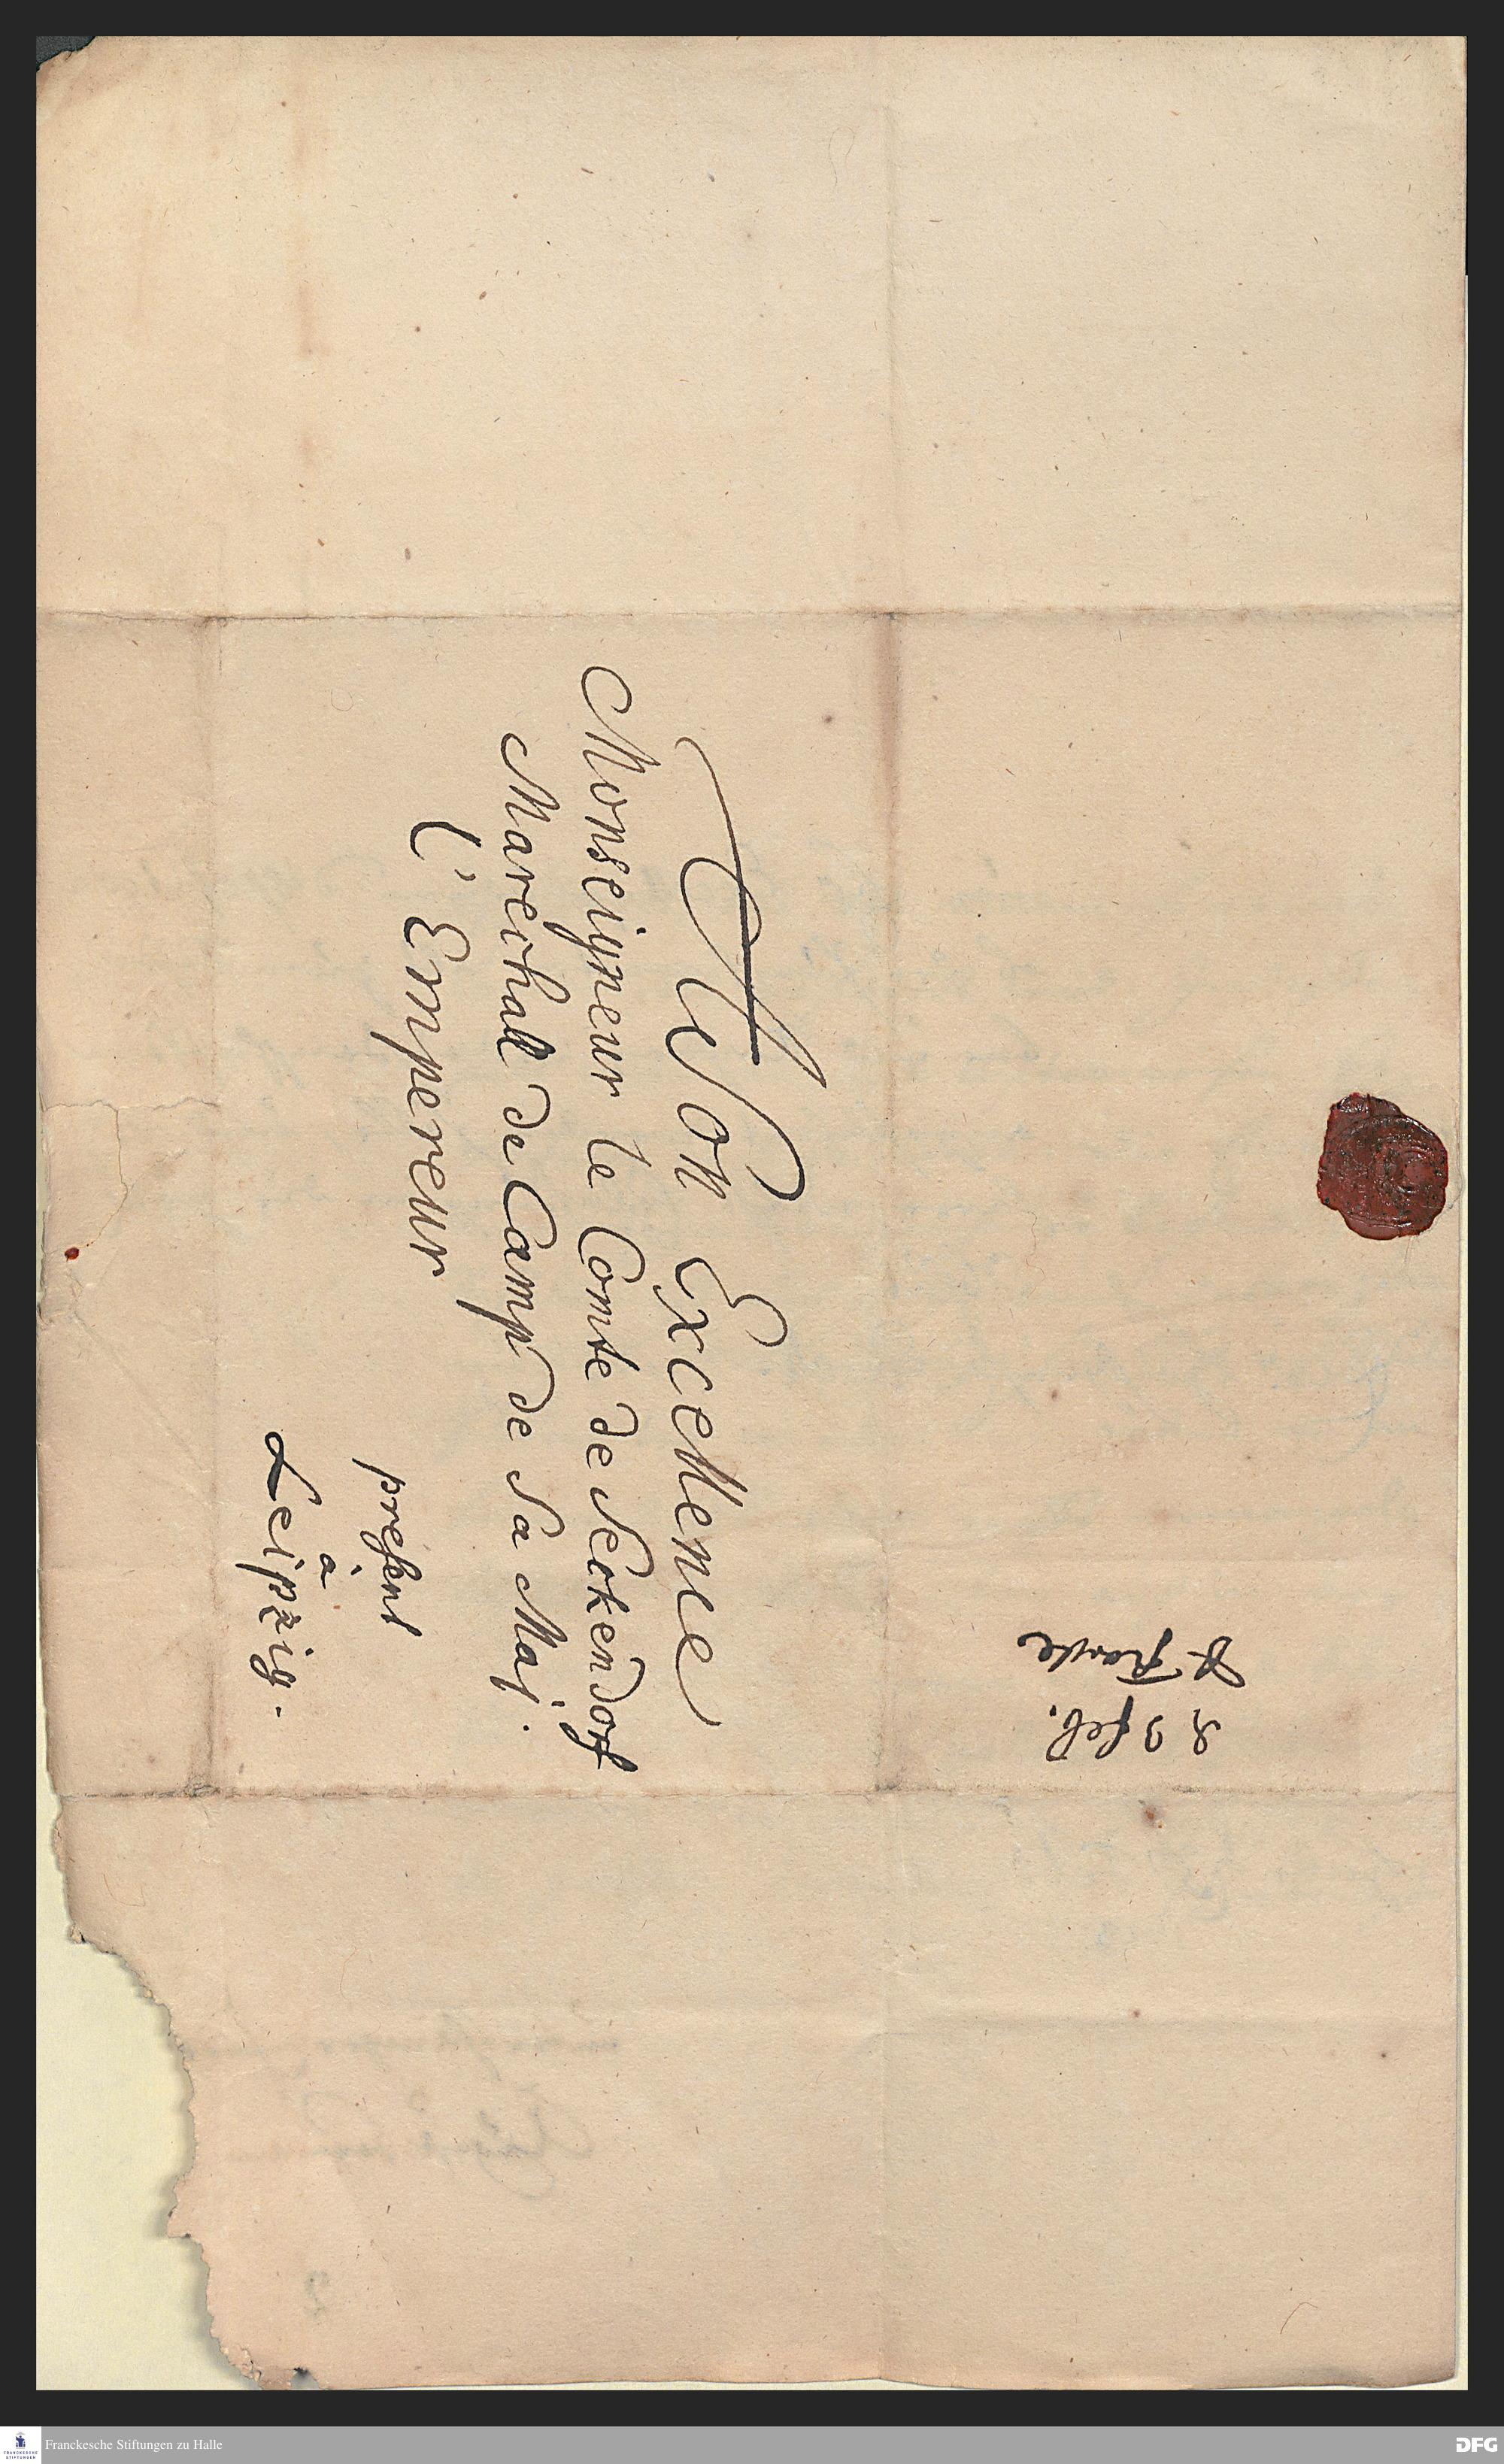 A Son Excellence
Monseigneur le Comte de Seckendorf
Marechall de Camp de Sa Maj.
l'Empereur
present
à
Leipzig.
23 feb.
Franckesche Stiftungen zu Halle
FRANCKESCHE
STIFTUNGEN
DFG